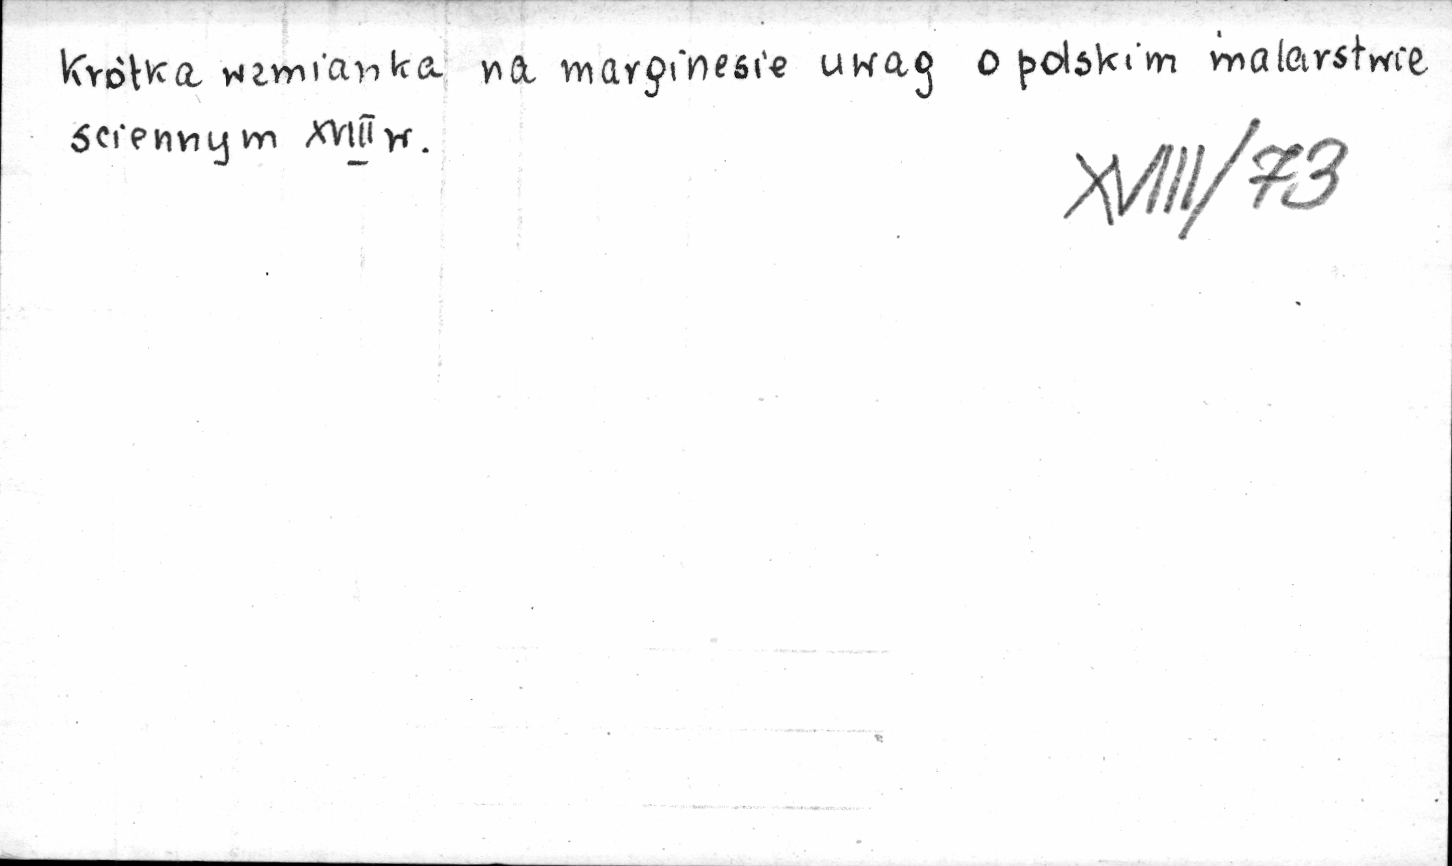 Krótka wzmianka na marginesie uwag o polskim malarstwie
sciennym XVIII w.
XVIII/73